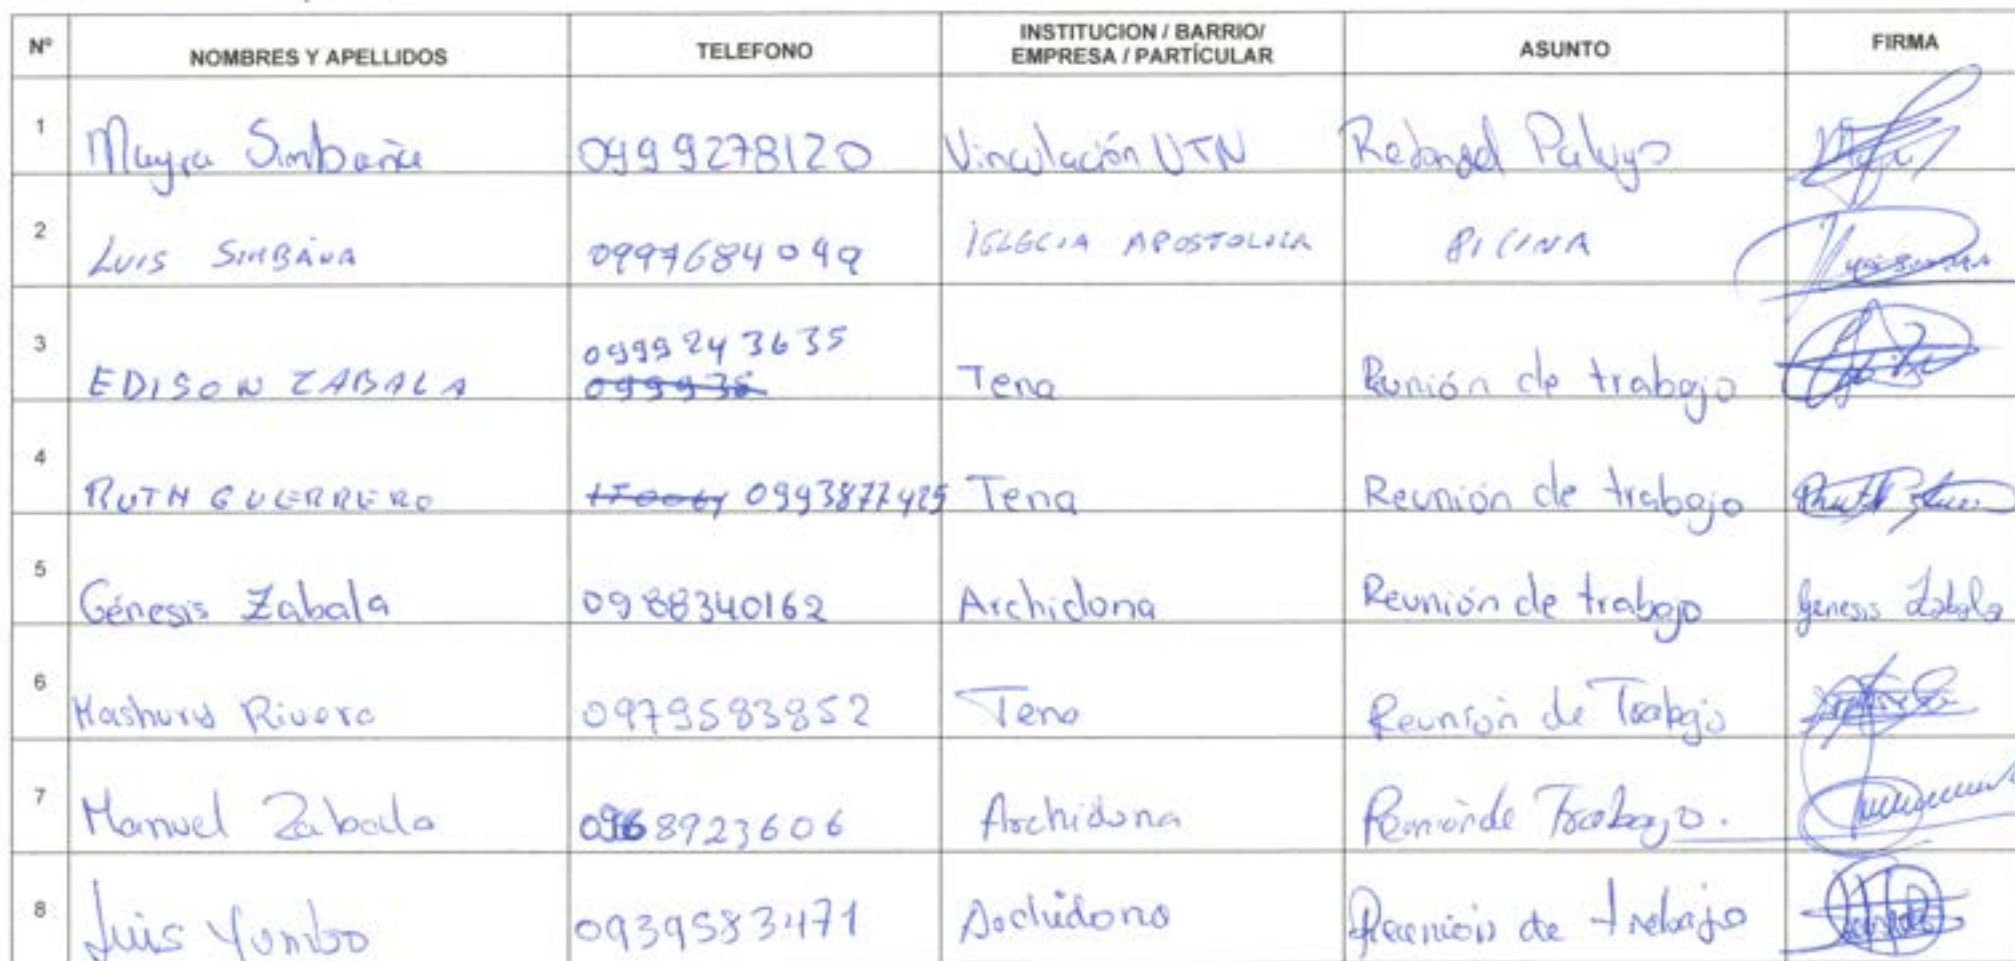 Nº NOMBRES Y APELLIDOS TELEFONO INSTITUCION / BARRIO/ EMPRESA / PARTÍCULAR ASUNTO FIRMA
1 Mayra Simbaña 0999278120 Vinculación UTN
2 LUIS SIMBAÑA 0997684049 IGLECIA APOSTOLICA PICINA
3 EDISON ZABALA 0999243635 Tena Runión de trabajo
099935
4 RUTH GUERRERO 0993877425 Tena Reunión de trabajo
5 Génesis Zabala 0988340162 Archidona Reunión de trabajo Génesis Zabala
6 Rivera 0979583852 Tena Reunión de Trabajo
7 Manuel Zabala 0968923606 Archidona Reunión de Trabajo.
8 Luis Yumbo 0939583471 Archidona Reunión de trabajo